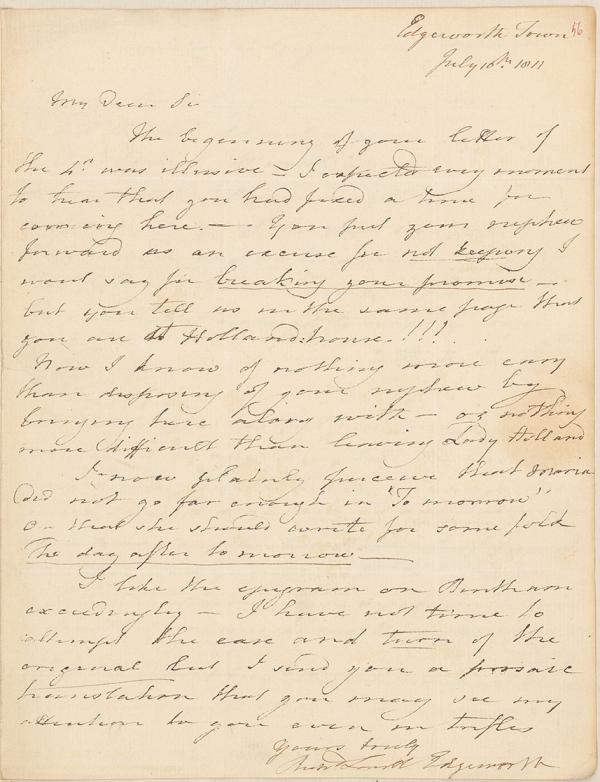 Edgeworth Town 56
July 16th. 1811
My Dear Sir
The beginning of your letter of
the 4th was illusive – I expected every moment
to hear that you had fixed a time for
coming here. — You put your nephew
forward as an excuse for not keeping I
wont say for breaking your promise –
but you tell us in the same page that
you are at Holland-house.!!!
Now I know of nothing more easy
than disposing of your nephew by
bringing here along with – or nothing
more difficult than leaving Lady Holland
I now plainly perceive that Maria
did not go far enough in "To morrow"
or that she should write for some folk
The day after to morrow —
I like the epigram on Bentham
exceedingly – I have not time to
attempt the ease and turn of the
original but I send you a prosaic
translation that you may see my
attention to you even in trifles
Yours truly
Edgeworth